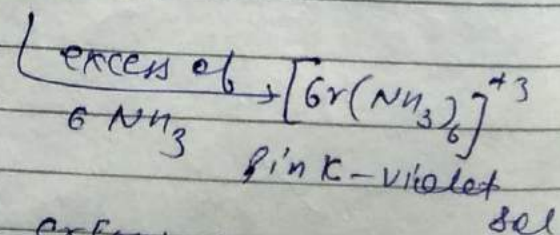 excess of
6 NH3
[Cr(NH3)6]+3
Pink-violet
sol